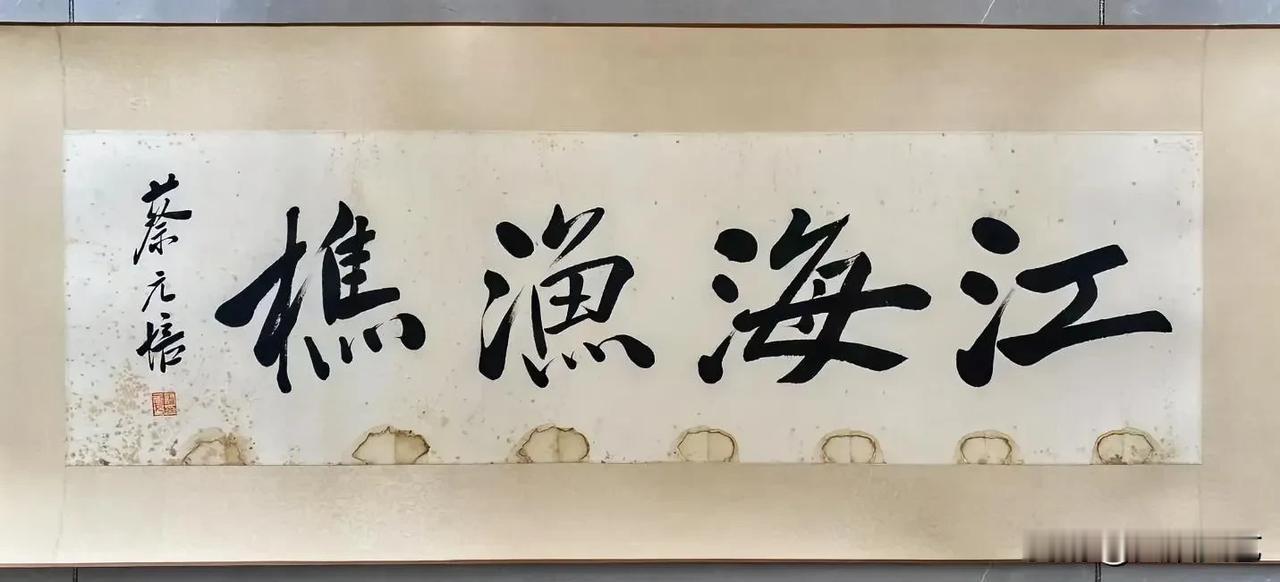 江海漁樵
蔡元培